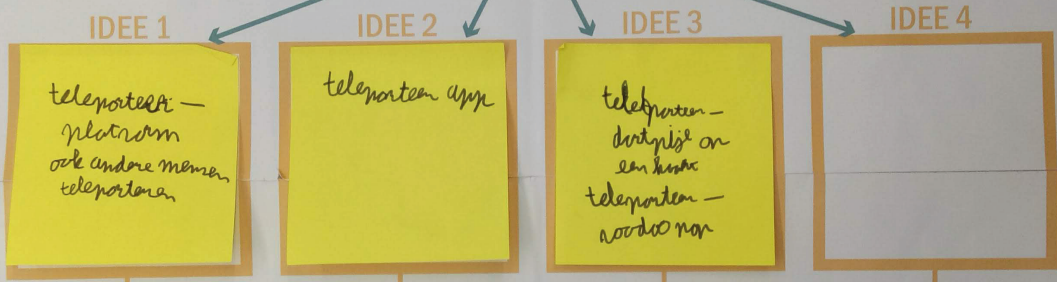 IDEE 1
teleporteer-
platvorm
ook andere mensen
teleporteren
IDEE 2
teleporteer app
IDEE 3
teleporteer-
dartpijl on
een
teleporteer-
voodoo pop
IDEE 4